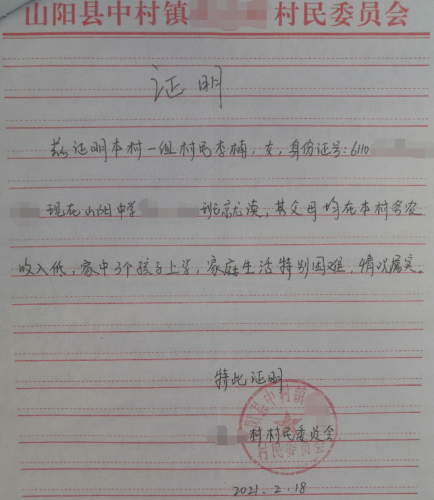 山阳县中村镇 村民委员会
证明
兹证明本村一组村民李楠,女,身份证号:6110
现在山阳中学 班就读,其父母均在本村务农
收入低,家中3个孩子上学,家庭生活特别困难,情况属实。
特此证明
村村民委员会
山阳县中村镇
村民委员会
2021.2.18